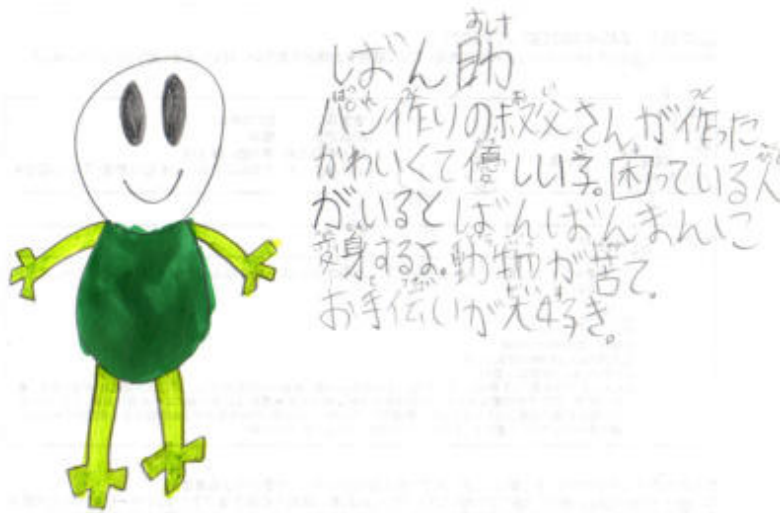 ばん助
パン作りの叔父さんが作った
かわいくて優しい子。困っている人
がいるとばんばんまんに
変身するよ。動物が苦て。
お手伝いが大好き。